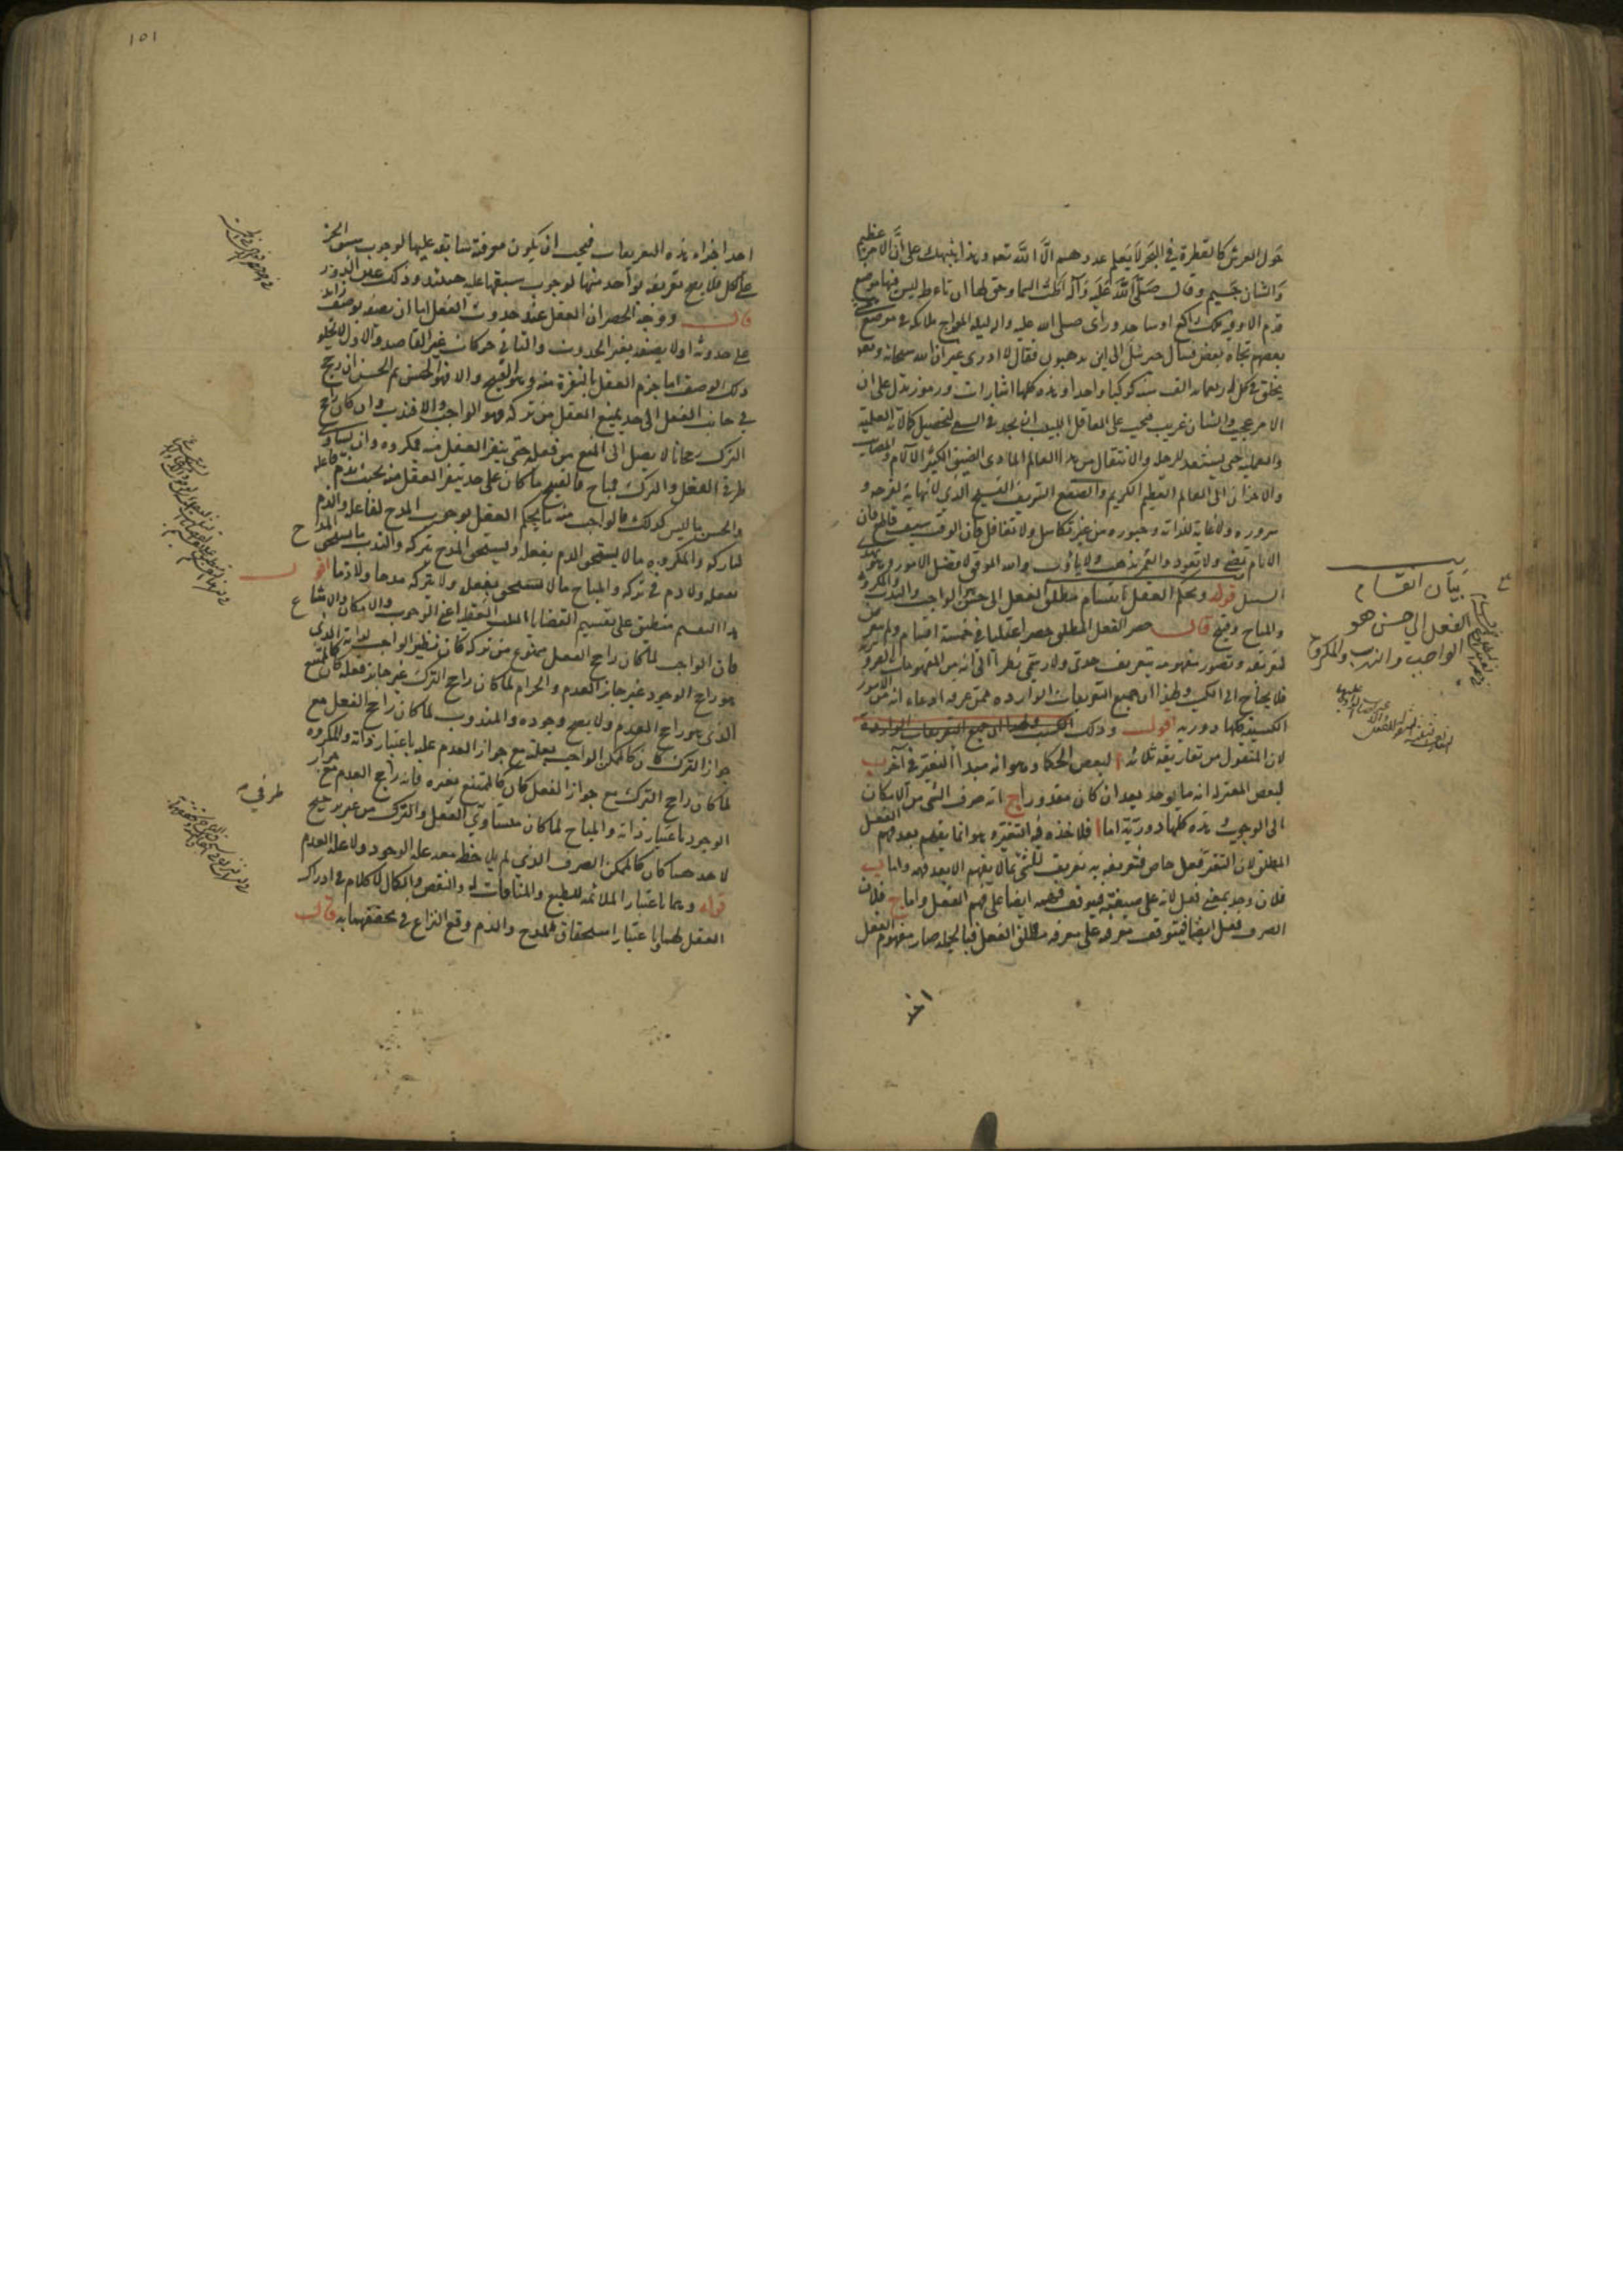 حول العرش كالقطرة في البحر لا يعلم عددهم الا الله تعه وهذا ينبهك على ان الامر عظيم
والشان جسيم وقال صلى الله عليه وآله اطت السماء وحق لها ان تاءط ليس فيها موضع
قدم الا وفيه ملك راكع او ساجد ورأى صلى الله عليه واله ليلة المعراج ملائكة في موضع
بعضهم تجاه بعض فسأل جبرئيل الى اين يذهبون فقال لا ادري غير ان الله سبحانه وتعه
يخلق في كل اربعمائه الف سنة كوكبا واحدا وهذه كلها اشارات ورموز تدل على ان
الامر عجيب والشان غريب فيجب على العاقل اللبيب ان يجد في السعي لتحصيل كمالاته العلمية
والعملية حتى يستعد للرحلة والانتقال من هذا العالم المادي الضيق الكثير الآلام والمصايب
والاحزان الى العالم العظيم الكريم والصقع الشريف الفسيح الذي لا نهاية لفرحه و
سروره ولا غاية للذاته وحبوره من غير تكاسل ولا تغافل فان الوقت سيف قاطع فان
الايام تمضي ولا تعود والعمر يذهب ولا يأوب والله الموفق لافضل الامور
السبل قوله ويحكم العقل بانقسام مطلق الفعل الى حسن هو الواجب والندب والمكروه
والمباح وقبيح قال حصر الفعل المطلق حصرا عقليا في خمسة اقسام ولم يتعرض
لتعريفه وتصور مفهومه بتعريف حدي ولا رسمي نظرا الى انه من المفهومات الضرورية
فلا يحتاج الى الكسب ولهذا ان جميع التعريفات الوارده ممن عرفه وادعاء انه من الامور
الكسبية كلها دورية اقول وذلك
لان المنقول من تعاريفه ثلاثة ا لبعض الحكماء وهو انه مبدأ التغير في آخر ب
لبعض المعتزلة انه ما يوجد بعد ان كان مقدورا ج انه صرف الشيء من الامكان
الى الوجوب وهذه كلها دورية اما ا فلاخذه فيه التغير وهو انما يفهم بعد فهم الفعل
المطلق لان التغير فعل خاص فتعريفه به تعريف للشيء بما لا يفهم الا بعد فهمه واما ب
فلان وجد بمعنى فعل لانه على صيغته فيتوقف فهمه ايضا على فهم الفعل واما ج فلان
الصرف فعل ايضا فيتوقف معرفته على معرفة مطلق الفعل فبالجملة صار مفهوم الفعل
احد
بيان انقسام
الفعل الى حسن هو
الواجب والندب والمكروه
١٥١
احد اجزاء هذه التعريفات فيجب ان يكون معرفته سابقة عليها لوجوب سبق الجزء
على الكل فلا يصح تعريفه بواحد منها لوجوب سبقها عليه حينئذ وذلك عين الدور
قال ووجه الحصر ان العقل عند حدوث الفعل اما ان يصفه بوصف زايد
على حدوثه اولا يصفه بغير الحدوث والثاني حركات غير القاصد والاول لا يخلو
ذلك الوصف اما جزم العقل بالنفرة منه وهو القبيح والا فهو الحسن ثم الحسن ان رجح
في جانب الفعل الى حد يمنع العقل من تركه فهو الواجب والا فندب وان كان راجح
الترك رجحانا لا يصل الى المنع من فعله حتى ينفر العقل منه فمكروه وان يساو
طرفي الفعل والترك فمباح فالقبيح ما كان على حد ينفر العقل منه بحيث يذم فاعله
والحسن ما ليس كذلك فالواجب منه ما يحكم العقل بوجوب المدح لفاعله والذم
لتاركه والمكروه ما لا يستحق الذم بفعله ويستحق المدح بتركه والندب ما يستحق المدح
بفعله ولا ذم في تركه والمباح ما لا يستحق بفعله ولا بتركه مدحا ولا ذما اقول
هذا التقسيم منطبق على تقسيم القضايا الثلث العقلية اعني الوجوب والامكان والامتناع
فان الواجب لما كان راجح الفعل ممنوع من تركه كان نظير الواجب لذاته الذي
هو راجح الوجود غير جايز العدم والحرام لما كان راجح الترك غير جايز فعله كان كالممتنع
الذي هو راجح العدم ولا يصح وجوده والمندوب لما كان راجح الفعل مع
جواز الترك كان كالممكن الواجب بعلته مع جواز العدم عليه باعتبار ذاته والمكروه
لما كان راجح الترك مع جواز الفعل كان كالممتنع بغيره فانه راجح العدم مع جواز
الوجود باعتبار ذاته والمباح لما كان متساوي الفعل والترك من غير ترجيح
لاحدهما كان كالممكن الصرف الذي لم يلاحظ معه علة الوجود ولا علة العدم
قوله وهما باعتبار الملائمة للطبع والمنافات له والنقص والكمال لا كلام في ادراك
العقل لهما وباعتبار استحقاق المدح والذم وقع النزاع في تحققهما به قال
طرفي